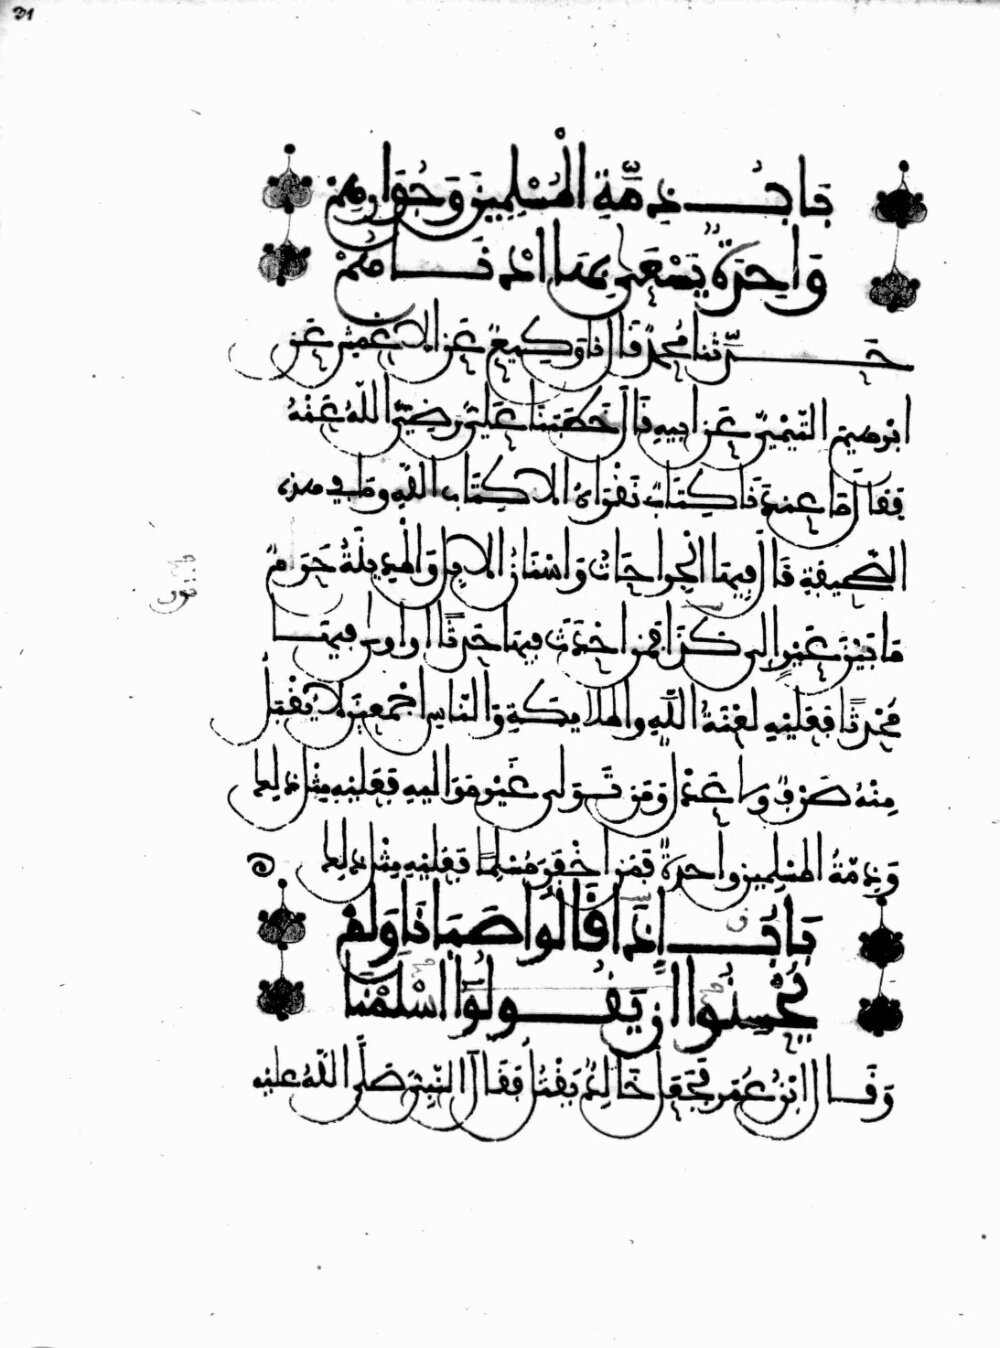 31
بَابُ ذِمَّةِ الْمُسْلِمِينَ وَجُوَارِهِمْ
وَاحِدَةٌ يَسْعَى بِهَا أَدْنَاهُمْ
حَدَّثَنَا مُحَمَّدٌ قَالَ نَا وَكِيعٌ عَنِ الاَعْمَشِ عَنْ
ابْرهِيمَ التَّيْمِيِّ عَنْ ابِيهِ قَالَ خَطَبَنَا عَلِيٌّ رَضِيَ اللَّهُ عَنْهُ
فَقَالَ مَا عِنْدَنَا كِتَابٌ نَقْرَأهُ الاَّ كِتَابُ اللَّهِ وَمَا فِي هذِهِ
الصَّحِيفَةِ قَالَ فِيهَا الْجِرَاحَاتُ وَاسْنَانُ الاِبِلِ وَالْمَدِينَةُ حَرَمٌ
مَا بَيْنَ عَيْرٍ إِلَى كَذَا فَمَنْ احْدَثَ فِيهَا حَدَثًا اوَ اوى فِيهَا
مُحْدِثًا فَعَلَيْهِ لَعْنَةُ اللَّهِ والمَلايكَةِ وَالنَّاسِ اجْمَعِينَ لاَ يُقْبَلُ
مِنْهُ صَرْفٌ وَلا عَدْلٌ وَمَنْ تَوَلى غَيْرَ مَوَالِيهِ فَعَلَيْهِ مِثْلُ ذلِكَ
وَذِمَّةُ المُسْلِمِينَ وَاحِدَةٌ فَمَنْ اخْفَرَ مُسْلِمًا فَعَلَيْهِ مِثْلُ ذلِكَ
بَابٌ إِذَا قَالُوا صَبَانَا وَلَمْ
يُحْسِنُوا أَنْ يَقُولُوا اسْلَمْنَا
وَقَالَ ابْنُ عُمَرَ فَجَعَلَ خَالِدٌ يَقْتُلُ فَقَالَ النَّبِيُّ صَلَّى اللَّهُ عَلَيْهِ